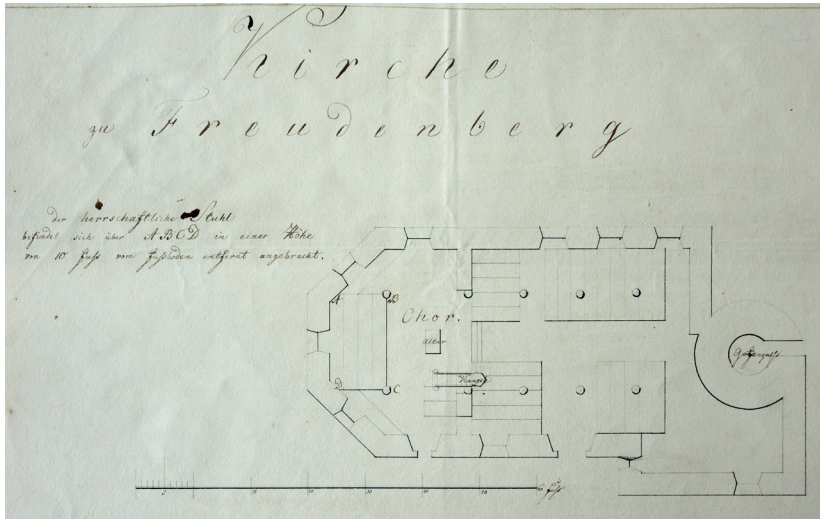 Kirche
zu Freudenberg
der herrschaftliche Stuhl
befindet sich über ABCD in einer Höhe
von 10 Fuß vom Fußboden entfernt angebracht.
A B
Chor.
Altar
Gefängniß
Kanzel
D C
5 10 20 30 40 50 60 Fuß